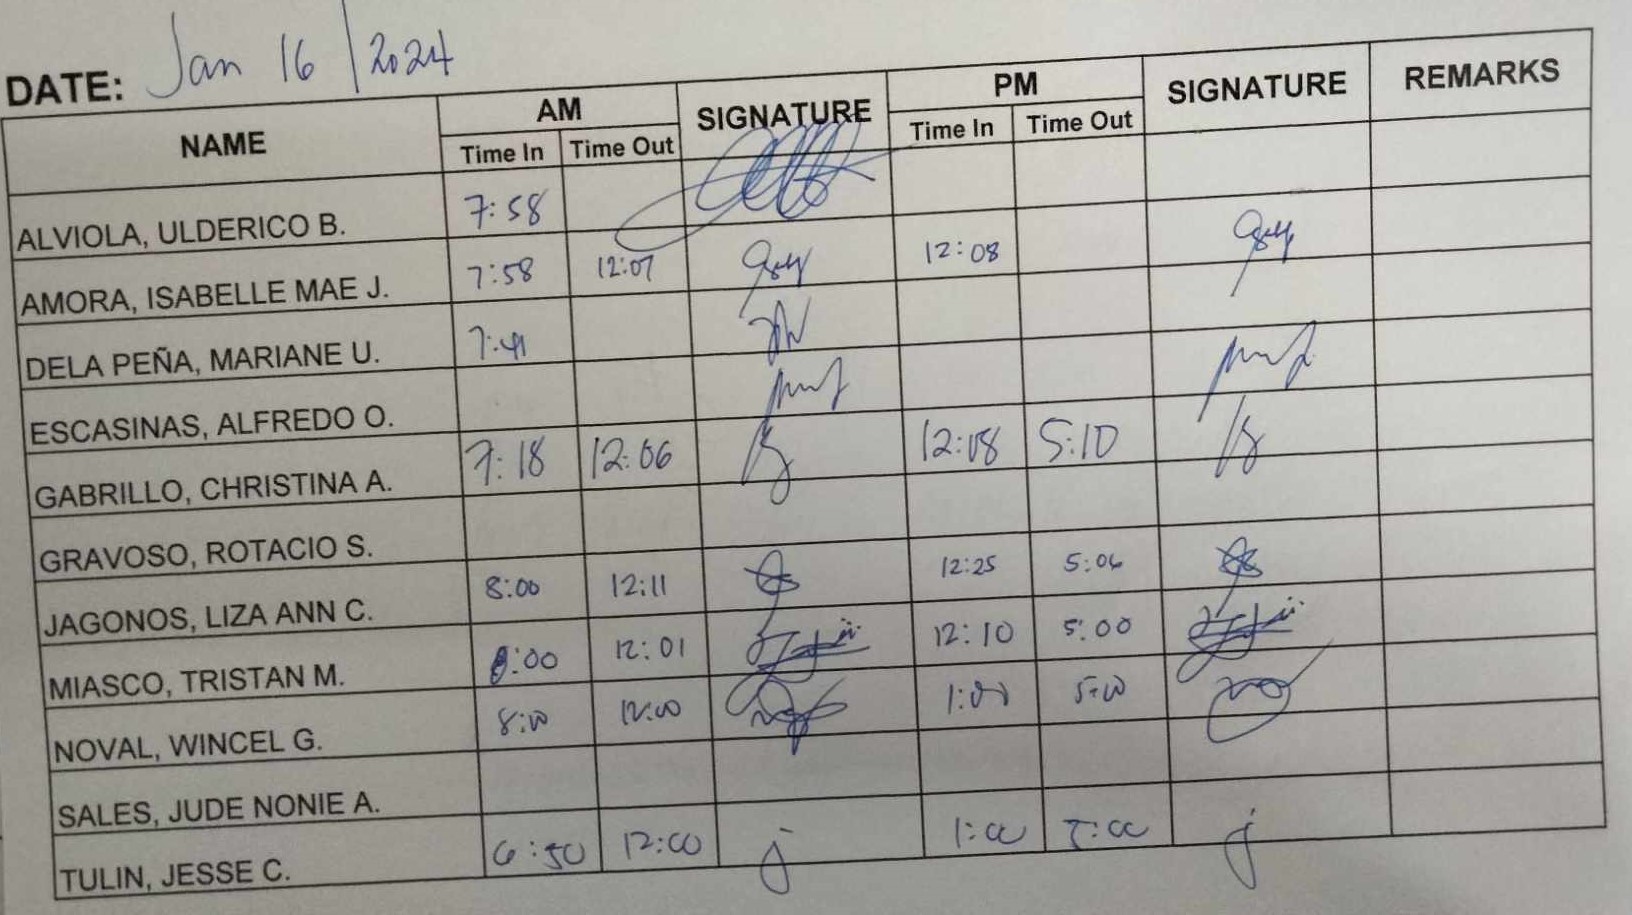 DATE: Jan 16/2024
NAME AM SIGNATURE PM SIGNATURE REMARKS
Time In Time Out Time In Time Out
ALVIOLA, ULDERICO B. 7:58
AMORA, ISABELLE MAE J. 7:58 12:07 12:08
DELA PEÑA, MARIANE U. 7:41
ESCASINAS, ALFREDO O.
GABRILLO, CHRISTINA A. 7:18 12:06 12:08 5:10
GRAVOSO, ROTACIO S.
JAGONOS, LIZA ANN C. 8:00 12:11 12:25 5:06
MIASCO, TRISTAN M. 8:00 12:01 12:10 5:00
NOVAL, WINCEL G. 8:00 12:00 1:00 5:00
SALES, JUDE NONIE A.
TULIN, JESSE C. 6:50 12:00 1:00 5:00